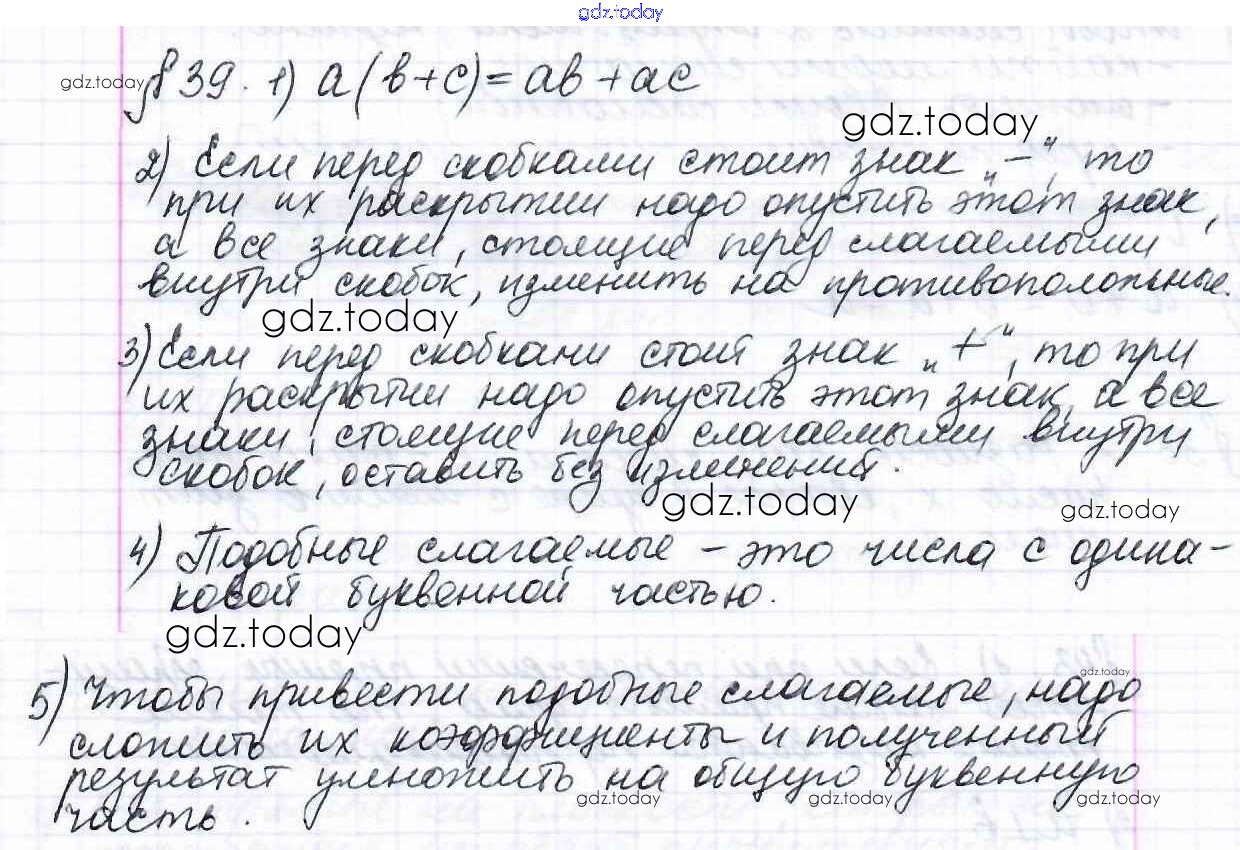 gdz.today
§ 39. 1) a(b+c)=ab+ac
gdz.today
gdz.today
2) Если перед скобками стоит знак „−“, то
при их раскрытии надо опустить этот знак,
а все знаки, стоящие перед слагаемыми
внутри скобок, изменить на противоположные.
gdz.today
3) Если перед скобками стоит знак „+“, то при
их раскрытии надо опустить этот знак, а все
знаки, стоящие перед слагаемыми внутри
скобок, оставить без изменений.
gdz.today
gdz.today
4) Подобные слагаемые – это числа с одина-
ковой буквенной частью.
gdz.today
gdz.today
5) Чтобы привести подобные слагаемые, надо
сложить их коэффициенты и полученный
результат умножить на общую буквенную
часть.
gdz.today
gdz.today
gdz.today